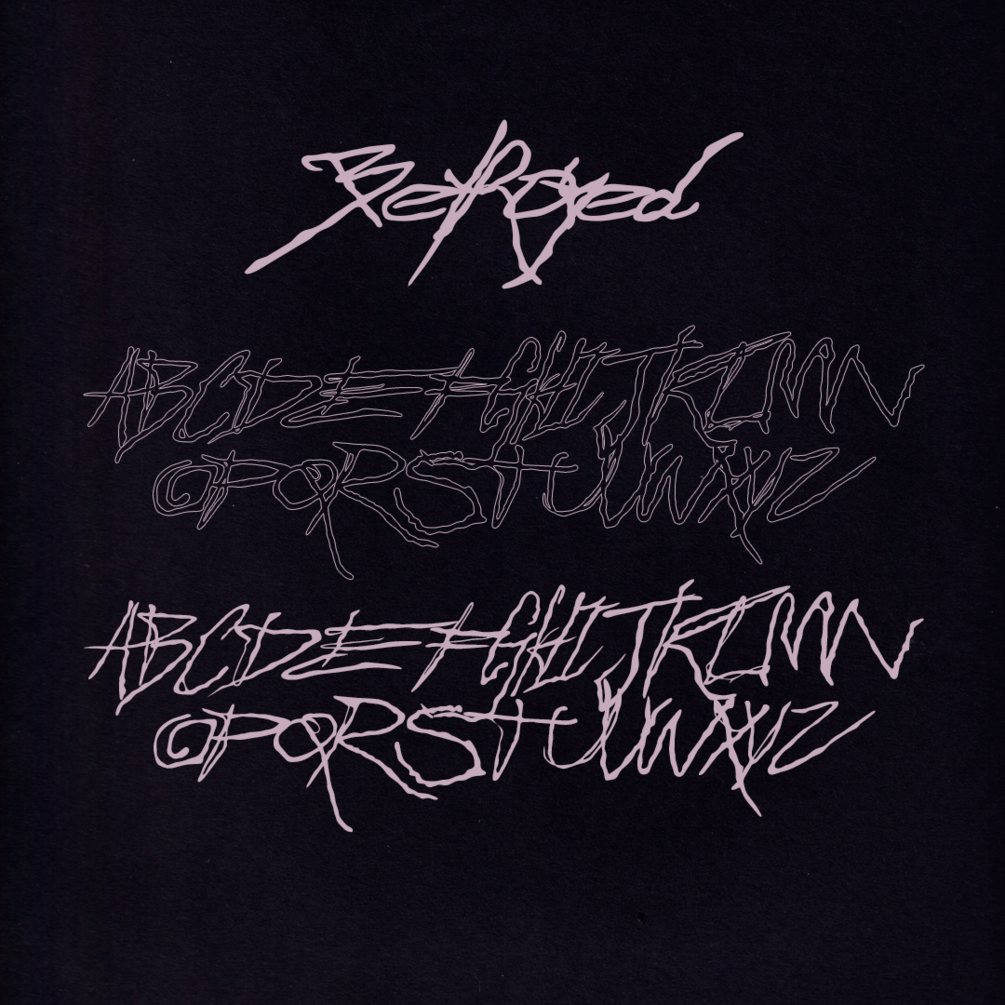 BetRayed
ABCDEFGHIJKLMN
OPQRSTUVWXYZ
ABCDEFGHIJKLMN
OPQRSTUVWXYZ